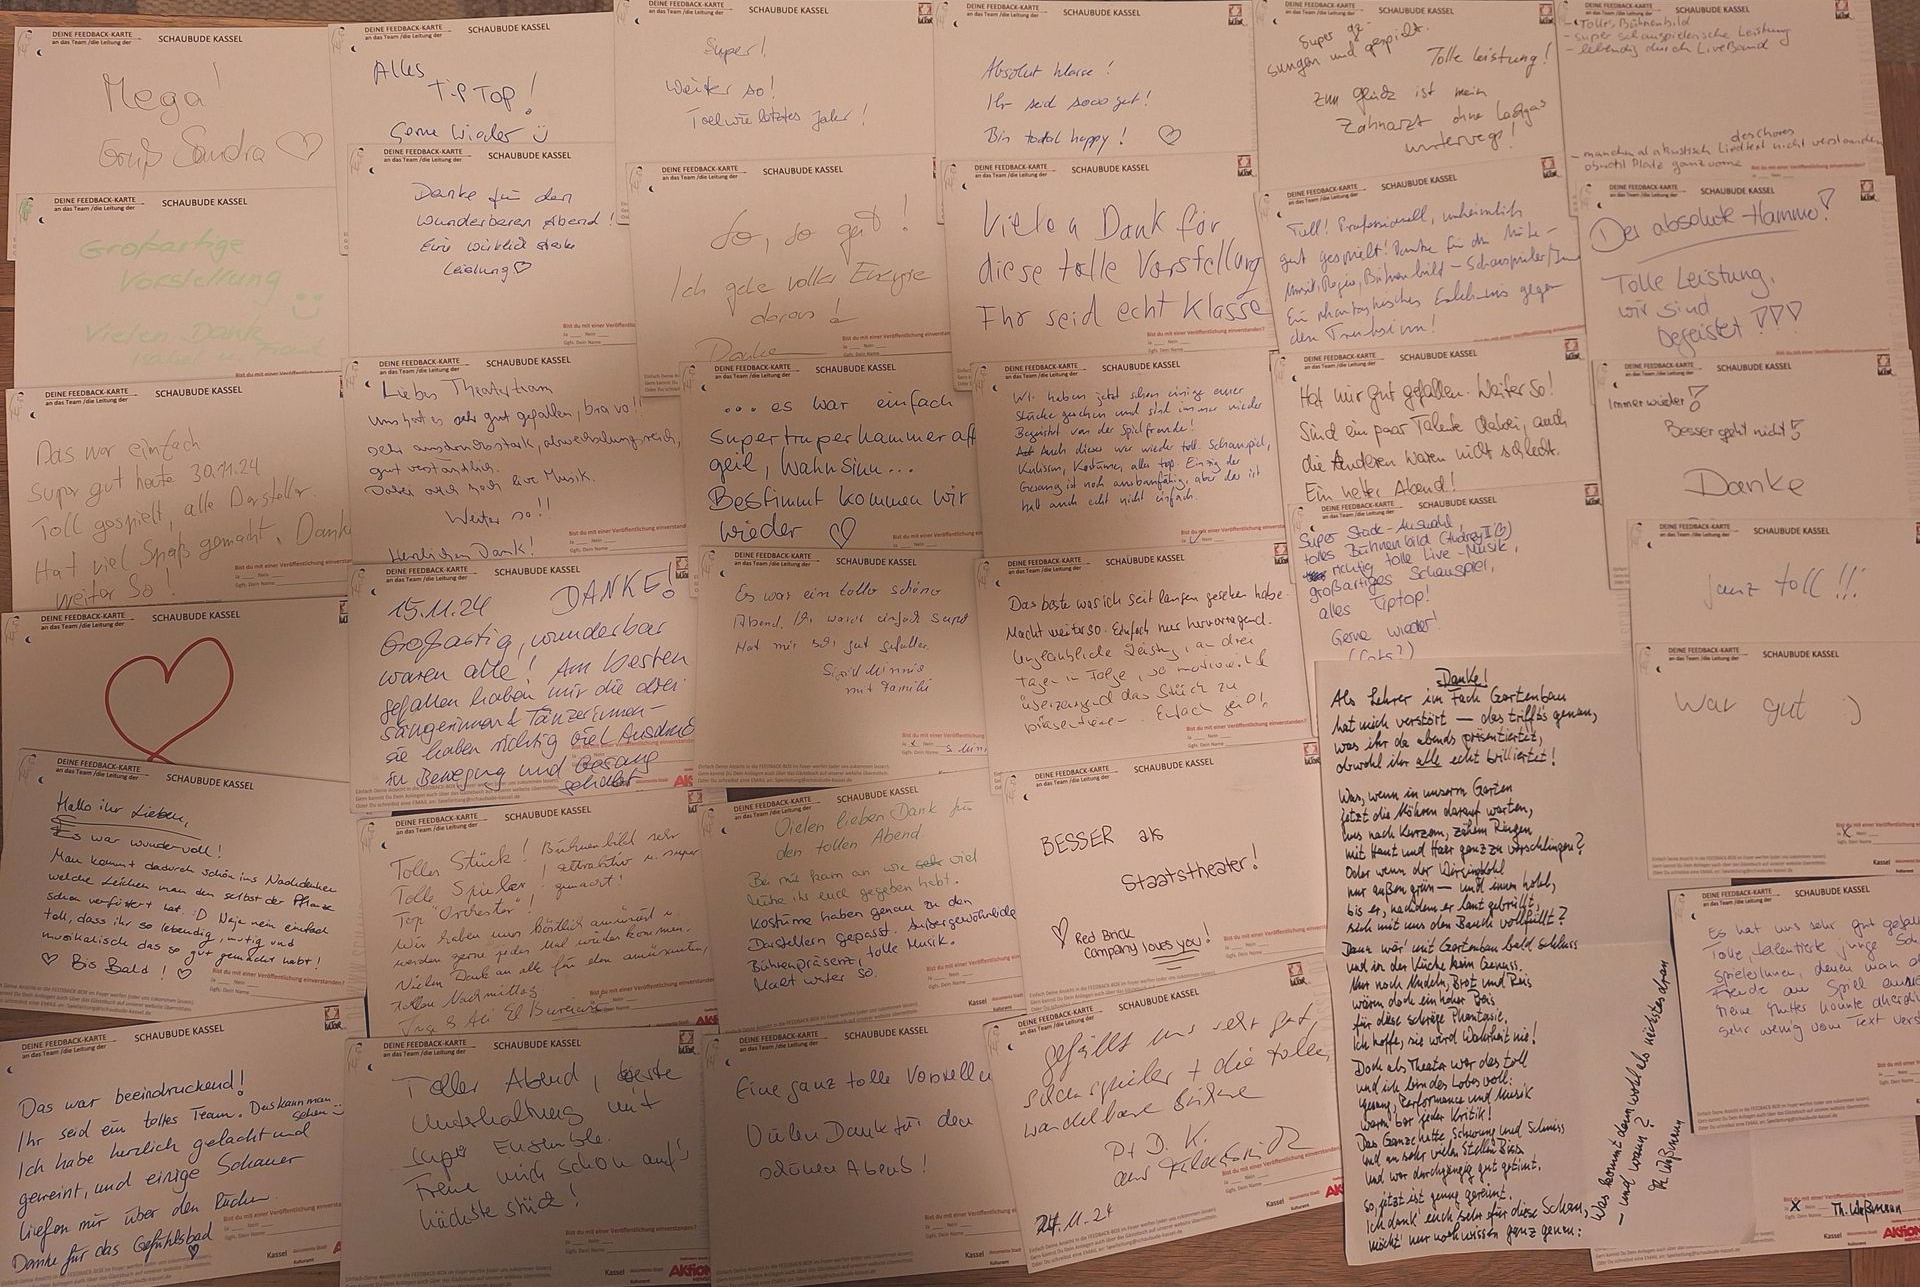 DEINE FEEDBACK-KARTE
an das Team /die Leitung der
SCHAUBUDE KASSEL
Mega!
Gruß Sandra
DEINE FEEDBACK-KARTE
an das Team /die Leitung der
SCHAUBUDE KASSEL
Großartige
Vorstellung
Vielen Dank
DEINE FEEDBACK-KARTE
an das Team /die Leitung der
SCHAUBUDE KASSEL
Das war einfach
super gut heute 30.11.24
Toll gespielt, alle Darsteller.
Hat viel Spaß gemacht. Danke
weiter so.
DEINE FEEDBACK-KARTE
an das Team /die Leitung der
SCHAUBUDE KASSEL
DEINE FEEDBACK-KARTE
an das Team /die Leitung der
SCHAUBUDE KASSEL
Hallo ihr Lieben,
Es war wundervoll!
Man kommt dadurch schön ins Nachdenken
welche Leichen man den selbst der Pflanze
schon verfüttert hat. :D Naja nein einfach
toll, dass ihr so lebendig, mutig und
musikalisch das so gut gemacht habt!
Bis Bald!
DEINE FEEDBACK-KARTE
an das Team /die Leitung der
SCHAUBUDE KASSEL
Das war beeindruckend!
Ihr seid ein tolles Team. Das kann man
sehen
Ich habe herzlich gelacht und
geweint, und einige Schauer
liefen mir über den Rücken.
Danke für das Gefühlsbad
DEINE FEEDBACK-KARTE
an das Team /die Leitung der
SCHAUBUDE KASSEL
Alles
TipTop!
Gerne wieder
DEINE FEEDBACK-KARTE
an das Team /die Leitung der
SCHAUBUDE KASSEL
Danke für den
wunderbaren Abend!
Eine wirklich starke
Leistung
DEINE FEEDBACK-KARTE
an das Team /die Leitung der
SCHAUBUDE KASSEL
Liebes Theaterteam
uns hat es sehr gut gefallen, bravo!!
sehr ausdrucksstark, abwechslungsreich,
gut verständlich.
Dabei auch noch live Musik.
Weiter so!!
Herzlichen Dank!
DEINE FEEDBACK-KARTE
an das Team /die Leitung der
SCHAUBUDE KASSEL
15.11.24 DANKE!
Großartig, wunderbar
waren alle! Am besten
gefallen haben mir die drei
Sängerinnen & Tänzerinnen -
sie haben richtig viel Ausdruck
in Bewegung und Gesang
DEINE FEEDBACK-KARTE
an das Team /die Leitung der
SCHAUBUDE KASSEL
Tolles Stück! Bühnenbild sehr
attraktiv u. super
Tolle Spieler! gemacht!
Top "Orchester"!
Wir haben uns köstlich amüsiert u.
werden gerne jedes Mal wiederkommen.
Vielen Dank an alle für den amüsanten,
tollen Nachmittag
DEINE FEEDBACK-KARTE
an das Team /die Leitung der
SCHAUBUDE KASSEL
Toller Abend, beste
Unterhaltung mit
super Ensemble.
Freue mich schon auf's
nächste Stück!
SCHAUBUDE KASSEL
Super!
Weiter so!
Toll wie letztes Jahr!
DEINE FEEDBACK-KARTE
an das Team /die Leitung der
SCHAUBUDE KASSEL
So, so gut!
Ich gehe voller Energie
daraus!
Danke
DEINE FEEDBACK-KARTE
an das Team /die Leitung der
SCHAUBUDE KASSEL
... es war einfach
supertruperhammeraff
geil, Wahnsinn...
Bestimmt kommen wir
wieder
DEINE FEEDBACK-KARTE
an das Team /die Leitung der
SCHAUBUDE KASSEL
Es war ein toller schöner
Abend. Ihr wart einfach super
Hat mir sehr gut gefallen.
mit Familie
DEINE FEEDBACK-KARTE
an das Team /die Leitung der
SCHAUBUDE KASSEL
Vielen lieben Dank für
den tollen Abend.
Bei mir kam an wie viel
Mühe ihr euch gegeben habt.
Kostüme haben genau zu den
Darstellern gepasst. Außergewöhnliche
Bühnenpräsenz, tolle Musik.
Macht weiter so.
DEINE FEEDBACK-KARTE
an das Team /die Leitung der
SCHAUBUDE KASSEL
Eine ganz tolle Vorstellu
Vielen Dank für den
schönen Abend!
DEINE FEEDBACK-KARTE
an das Team /die Leitung der
SCHAUBUDE KASSEL
Absolut klasse!
Ihr seid sooo gut!
Bin total happy!
DEINE FEEDBACK-KARTE
an das Team /die Leitung der
SCHAUBUDE KASSEL
Vielen Dank für
diese tolle Vorstellung
Ihr seid echt Klasse
DEINE FEEDBACK-KARTE
an das Team /die Leitung der
SCHAUBUDE KASSEL
Wir haben jetzt schon einige eurer
Stücke gesehen und sind immer wieder
Begeistert von der Spielfreude!
Auch dieses war wieder toll. Schauspiel,
Kulissen, Kostüme, alles top. Einzig der
Gesang ist noch ausbaufähig, aber das ist
halt auch echt nicht einfach.
DEINE FEEDBACK-KARTE
an das Team /die Leitung der
SCHAUBUDE KASSEL
Das beste was ich seit langem gesehen habe.
Macht weiter so. Einfach nur hervorragend.
Unglaubliche Leistung, an drei
Tagen in Folge, so motiviert &
überzeugend das Stück zu
präsentieren. Einfach geil!
DEINE FEEDBACK-KARTE
an das Team /die Leitung der
SCHAUBUDE KASSEL
BESSER als
Staatstheater!
Red Brick
Company loves you!
DEINE FEEDBACK-KARTE
an das Team /die Leitung der
SCHAUBUDE KASSEL
gefällt uns sehr gut,
schauspieler + die tolle,
wandelbare Bühne
P + D. K.
aus
24.11.24
DEINE FEEDBACK-KARTE
an das Team /die Leitung der
SCHAUBUDE KASSEL
Super ge-
sungen und gespielt.
Tolle Leistung!
Zum Glück ist mein
Zahnarzt ohne Lachgas
unterwegs!
DEINE FEEDBACK-KARTE
an das Team /die Leitung der
SCHAUBUDE KASSEL
Toll! Professionell, unheimlich
gut gespielt! Danke für die Mühe -
Musik, Regie, Bühnenbild - Schauspieler/Inn
Ein phantastisches Erlebnis gegen
den Trübsinn!
DEINE FEEDBACK-KARTE
an das Team /die Leitung der
SCHAUBUDE KASSEL
Hat mir gut gefallen. Weiter so!
Sind ein paar Talente dabei, auch
die Anderen waren nicht schlecht.
Ein netter Abend!
DEINE FEEDBACK-KARTE
an das Team /die Leitung der
SCHAUBUDE KASSEL
Super Stück-Auswahl,
tolles Bühnenbild (Audrey II)
richtig tolle Live-Musik,
großartiges Schauspiel,
alles Tiptop!
Gerne wieder!
(Cats?)
Danke!
Als Lehrer im Fach Gartenbau
hat mich verstört - das trifft's genau,
was ihr da abends präsentiertet,
obwohl ihr alle echt brilliertet!
Was, wenn in unserm Garten
jetzt die Möhren darauf warten,
uns nach kurzem, zähem Ringen
mit Haut und Haar ganz zu verschlingen?
Oder wenn der Wirsingkohl
nur außen grün - und innen hohl,
bis er, nachdem er laut gebrüllt,
sich mit uns den Bauch vollfüllt?
Dann wär' mit Gartenbau bald Schluss
und in der Küche kein Genuss.
Nur noch Nudeln, Brot und Reis
wären doch ein hoher Preis
für diese schräge Phantasie,
Ich hoffe, sie wird Wahrheit nie!
Doch als Theater war das toll
und ich bin des Lobes voll:
Gesang, Performance und Musik
war'n bar jeder Kritik!
Das Ganze hatte Schwung und Schmiss
und an sehr vielen Stellen Biss
und war durchgängig gut getimt.
So, jetzt ist genug gereimt.
Ich dank' euch sehr für diese Schau,
möcht' nur noch wissen ganz genau:
Was kommt denn wohl als nächstes dran
- und wann?
DEINE FEEDBACK-KARTE
an das Team /die Leitung der
SCHAUBUDE KASSEL
- Tolles Bühnenbild
- super schauspielerische Leistung
- lebendig durch LiveBand
des Chores
- manchmal akustisch Liedtext nicht verstanden
obwohl Platz ganz vorne
DEINE FEEDBACK-KARTE
an das Team /die Leitung der
SCHAUBUDE KASSEL
Der absolute Hammer!
Tolle Leistung,
wir sind
begeistert !!!
DEINE FEEDBACK-KARTE
an das Team /die Leitung der
SCHAUBUDE KASSEL
Immer wieder!
Besser geht nicht!
Danke
DEINE FEEDBACK-KARTE
an das Team /die Leitung der
SCHAUBUDE KASSEL
ganz toll!!!
DEINE FEEDBACK-KARTE
an das Team /die Leitung der
SCHAUBUDE KASSEL
War gut :)
DEINE FEEDBACK-KARTE
an das Team /die Leitung der
SCHAUBUDE KASSEL
Es hat uns sehr gut gefall
Tolle, talentierte junge Sch
spielerInnen, denen man d
Freude am Spiel
Meine Mutter konnte
sehr wenig vom Text vers